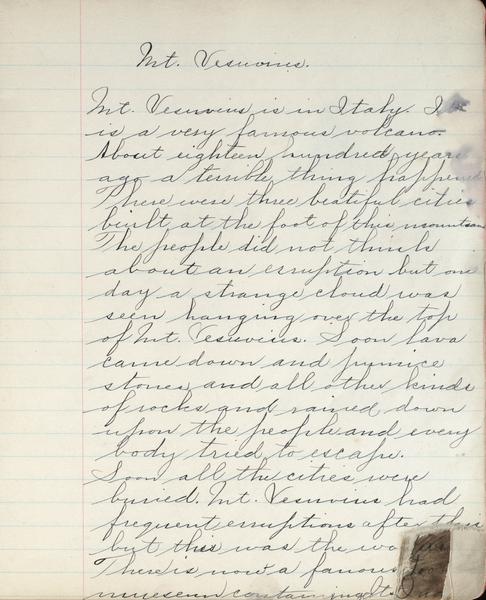 Mt. Vesuvius.
Mt. Vesuvius is in Italy. It
is a very famous volcano.
About eighteen hundred years
ago a terrible thing happened
There were three beatiful cities
built at the foot of this mountain
The people did not think
about an eruption but one
day a strange cloud was
seen hanging over the top
of Mt. Vesuvius. Soon lava
came down and pumice
stones and all other kinds
of rocks and rained down
upon the people and every
body tried to escape.
Soon all the cities were
buried. Mt. Vesuvius had
frequent eruptions after this
but this was the
There is now a famous
museum containing